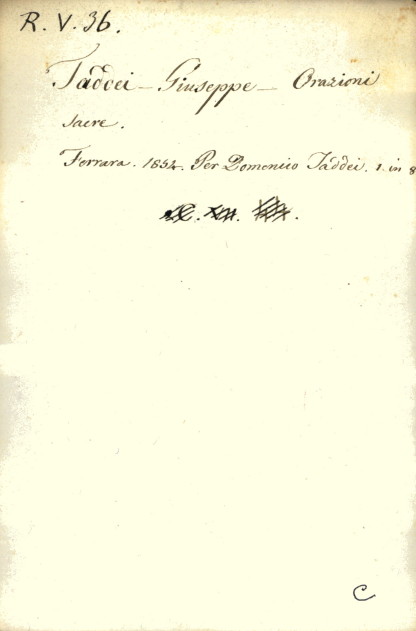 R. V. 36.
Taddei - Giuseppe - Orazioni
sacre.
Ferrara. 1854. Per Domenico Taddei. 1. in 8
C